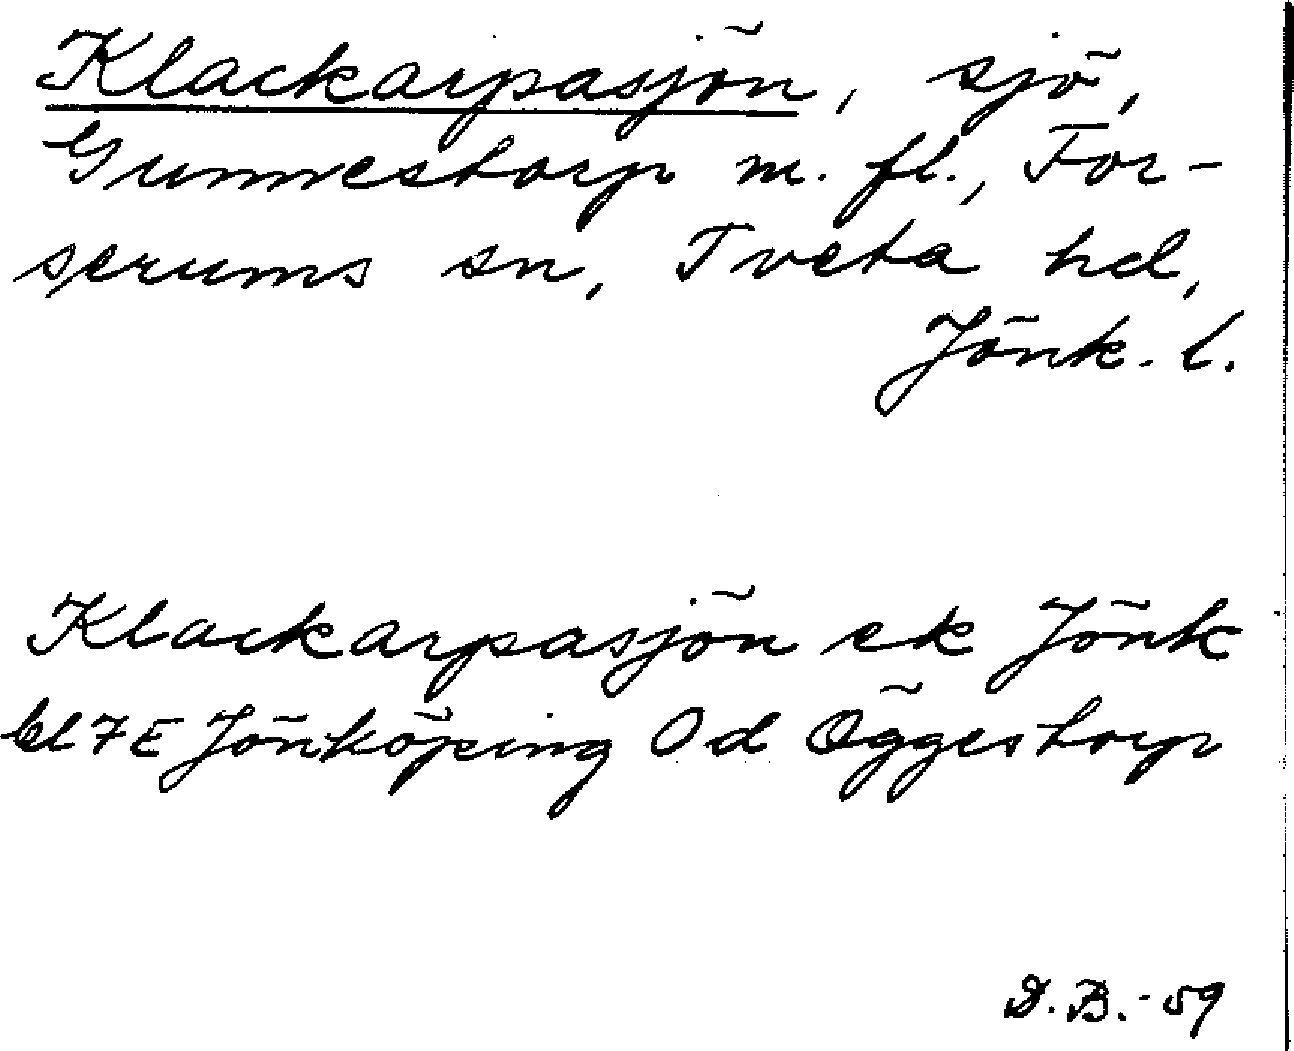 Klackarpasjön, sjö,
Gunnestorp m. fl., For-
serums sn, Tveta hd,
Jönk. l.
Klackarpasjön ek Jönk
bl 7E Jönköping Od Öggestorp
D.B.-59